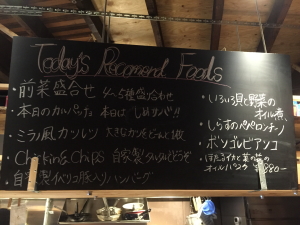 Today's Recomend Foods
・前菜盛合せ 4〜5種盛合わせ
・本日のカルパッチョ 本日は"しめサバ"!!
・ミラノ風カツレツ 大きなカツをどーんと1枚
・Chikin&Chips 自家製タルタルでどうぞ
・自家製イベリコ豚入りハンバーグ
・いろいろ貝と野菜の
オイル煮
・しらすのペペロンチーノ
・ボンゴレビアンコ
・ほたるイカと菜の花の
オイルパスタ ¥880-